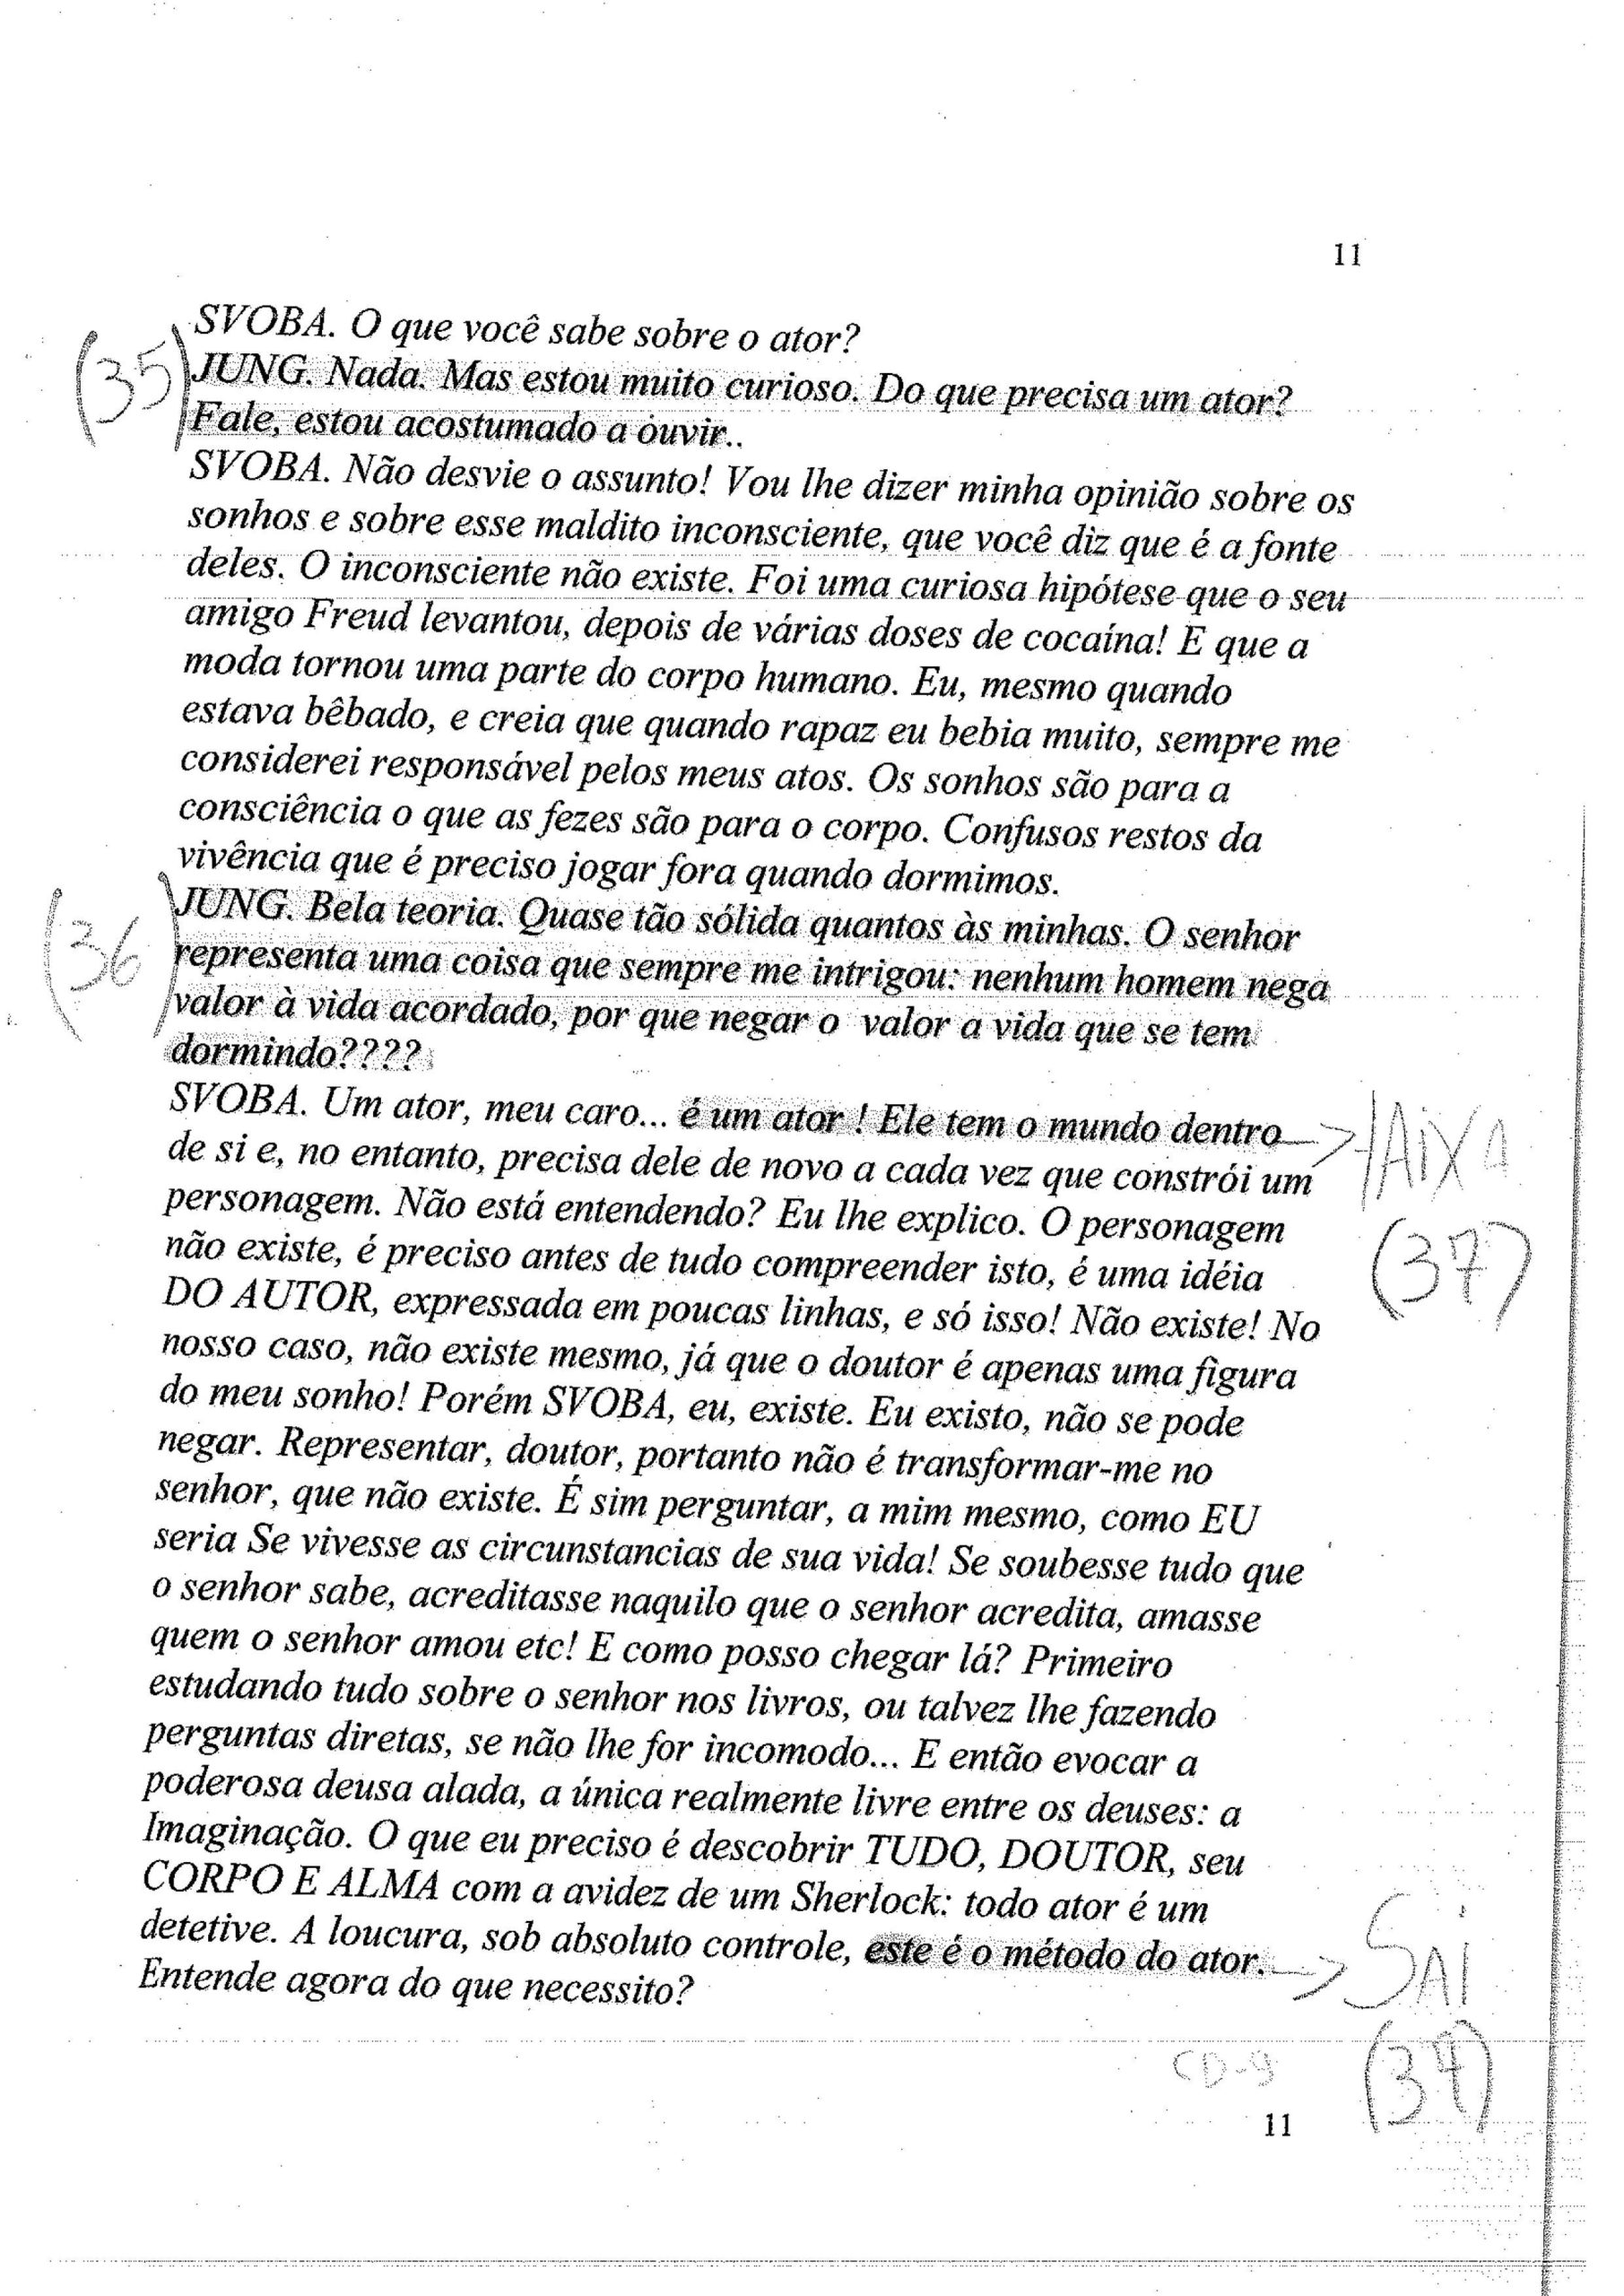 11
SVOBA. O que você sabe sobre o ator?
(35) JUNG. Nada. Mas estou muito curioso. Do que precisa um ator?
Fale, estou acostumado a ouvir..
SVOBA. Não desvie o assunto! Vou lhe dizer minha opinião sobre os
sonhos e sobre esse maldito inconsciente, que você diz que é a fonte
deles. O inconsciente não existe. Foi uma curiosa hipótese que o seu
amigo Freud levantou, depois de várias doses de cocaína! E que a
moda tornou uma parte do corpo humano. Eu, mesmo quando
estava bêbado, e creia que quando rapaz eu bebia muito, sempre me
considerei responsável pelos meus atos. Os sonhos são para a
consciência o que as fezes são para o corpo. Confusos restos da
vivência que é preciso jogar fora quando dormimos.
JUNG. Bela teoria. Quase tão sólida quantos às minhas. O senhor
(36 representa uma coisa que sempre me intrigou: nenhum homem nega
valor à vida acordado, por que negar o valor a vida que se tem
dormindo????
SVOBA. Um ator, meu caro... é um ator ! Ele tem o mundo dentro
de si e, no entanto, precisa dele de novo a cada vez que constrói um
personagem. Não está entendendo? Eu lhe explico. O personagem
(37)
não existe, é preciso antes de tudo compreender isto, é uma idéia
DO AUTOR, expressada em poucas linhas, e só isso! Não existe! No
nosso caso, não existe mesmo, já que o doutor é apenas uma figura
do meu sonho! Porém SVOBA, eu, existe. Eu existo, não se pode
negar. Representar, doutor, portanto não é transformar-me no
senhor, que não existe. É sim perguntar, a mim mesmo, como EU
seria Se vivesse as circunstancias de sua vida! Se soubesse tudo que
o senhor sabe, acreditasse naquilo que o senhor acredita, amasse
quem o senhor amou etc! E como posso chegar lá? Primeiro
estudando tudo sobre o senhor nos livros, ou talvez lhe fazendo
perguntas diretas, se não lhe for incomodo... E então evocar a
poderosa deusa alada, a única realmente livre entre os deuses: a
Imaginação. O que eu preciso é descobrir TUDO, DOUTOR, seu
CORPO E ALMA com a avidez de um Sherlock: todo ator é um
detetive. A loucura, sob absoluto controle, este é o método do ator. → SAI
Entende agora do que necessito?
CD-9
11